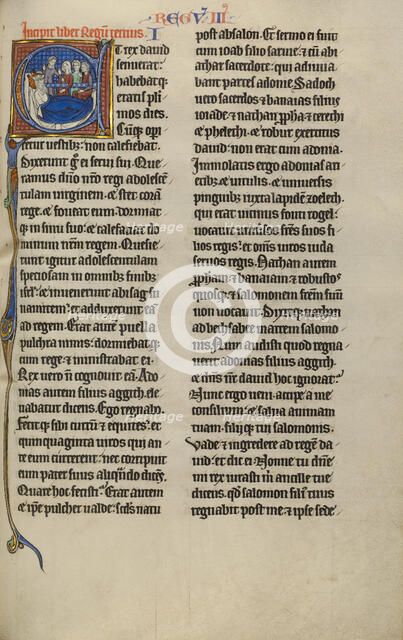 REGV III
Incipit liber Regum tercius. I
T rex dauid
senuerat
habebatq;
etatis pli
mos dies.
Cumq; opi
retur uestib; non calefiebat.
Dixerunt g̃ ei serui sui. Que
ramus dño nrõ regi adolescē
tulam uirginem. et stet coram
rege. et foueat eum. dormiat
q; in sinu suo. et calefaciat do
minum nrm regem. Quesie
runt igitur adolescentulam
speciosam in omnib; finib;
isrl. et inuenerunt abisag su
namitem. et adduxerunt eā
ad regem. Erat autē puella
pulchra nimis. dormiebatq;
cum rege. et ministrabat ei.
Rex uero ñ cognouit eā. Ado
nias autem filius aggith. ele
uabatur dicens. Ego regnabo.
Fecitq; sibi currum et equites. et
quinquaginta uiros qui an
te eum currerent. nec corripuit
eum pater suus aliqñdo dicēs.
Quare hoc fecisti. Erat autem
et ipe pulcher ualde. scds natu
post absalon. Et sermo ei fuit
cum ioab filio saruie. et cū abi
athar sacerdote. qui adiuua
bant partes adonie. Sadoch
uero sacerdos et banaias filius
ioiade. et nathan ppha. et cerethi
et phelethi. et robur exercitus
dauid. non erat cum adonia.
Immolatis ergo adonias ari
etib; et uitulis. et uniuersis
pinguib; iuxta lapidē zoeleth.
qui erat uicinus fonti rogel.
uocauit uniuersos frēs suos fi
lios regis. et om̄s uiros iuda
seruos regis. Nathan autem
pphām et banaiam et robustos
quosq; et salomonem frem suum
non uocauit. Dixit nathan
ad bethsabee matrem salomo
nis. Num audisti quod regna
uerit adonias filius aggith.
et dñs nr dauid hoc ignorat.
Nunc ergo ueni. accipe a me
consilium. et salua animam
tuam. filijq; tui salomonis.
Vade et ingredere ad regē da
uid. et dic ei. Nonne tu dñe
mi rex iurasti m ancille tue
dicens. qd salomon filius tuus
regnabit post me. et ipse sede
Heritage
Images